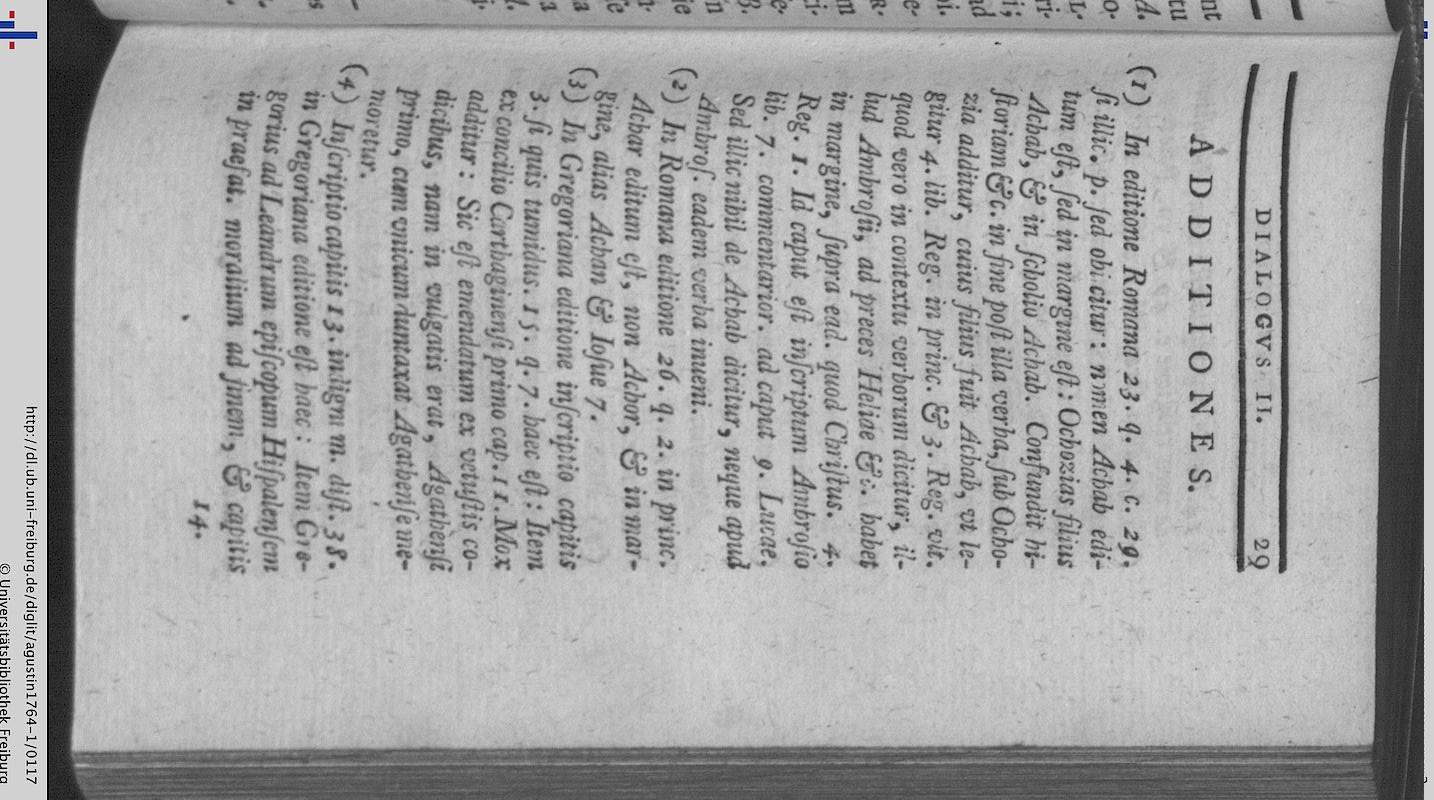 DIALOGVS II. 29
ADDITIONES.
(1) In editione Romana 23. q. 4. c. 29.
ſi illic. p. ſed obiicitur: nomen Achab edi-
tum eſt, ſed in margine eſt: Ochozias filius
Achab, & in ſcholio Achab. Confundit hi-
ſtoriam &c. in fine poſt illa verba, ſub Ocho-
zia additur, cuius filius fuit Achab, vt le-
gitur 4. lib. Reg. in princ. & 3. Reg. vlt.
quod vero in contextu verborum dicitur, il-
lud Ambroſii, ad preces Heliae &c. habet
in margine, ſupra ead. quod Chriſtus. 4.
Reg. 1. Id caput eſt inſcriptum Ambroſio
lib. 7. commentarior. ad caput 9. Lucae.
Sed illic nihil de Achab dicitur, neque apud
Ambroſ. eadem verba inueni.
(2) In Romana editione 26. q. 2. in princ.
Achar editum eſt, non Achor, & in mar-
gine, alias Achan & Ioſue 7.
(3) In Gregoriana editione inſcriptio capitis
3. ſi quis tumidus. 15. q. 7. haec eſt: Item
ex concilio Carthaginenſi primo cap. 11. Mox
additur: Sic eſt emendatum ex vetuſtis co-
dicibus, nam in vulgatis erat, Agathenſi
primo, cum vnicum duntaxat Agathenſe me-
moretur.
(4) Inſcriptio capitis 13. indigni m. diſt. 38.
in Gregoriana editione eſt haec: Item Gre-
gorius ad Leandrum epiſcopum Hiſpalenſem
in praefat. moralium ad finem, & capitis
14.
http://dl.ub.uni-freiburg.de/diglit/agustin1764-1/0117
© Universitätsbibliothek Freiburg